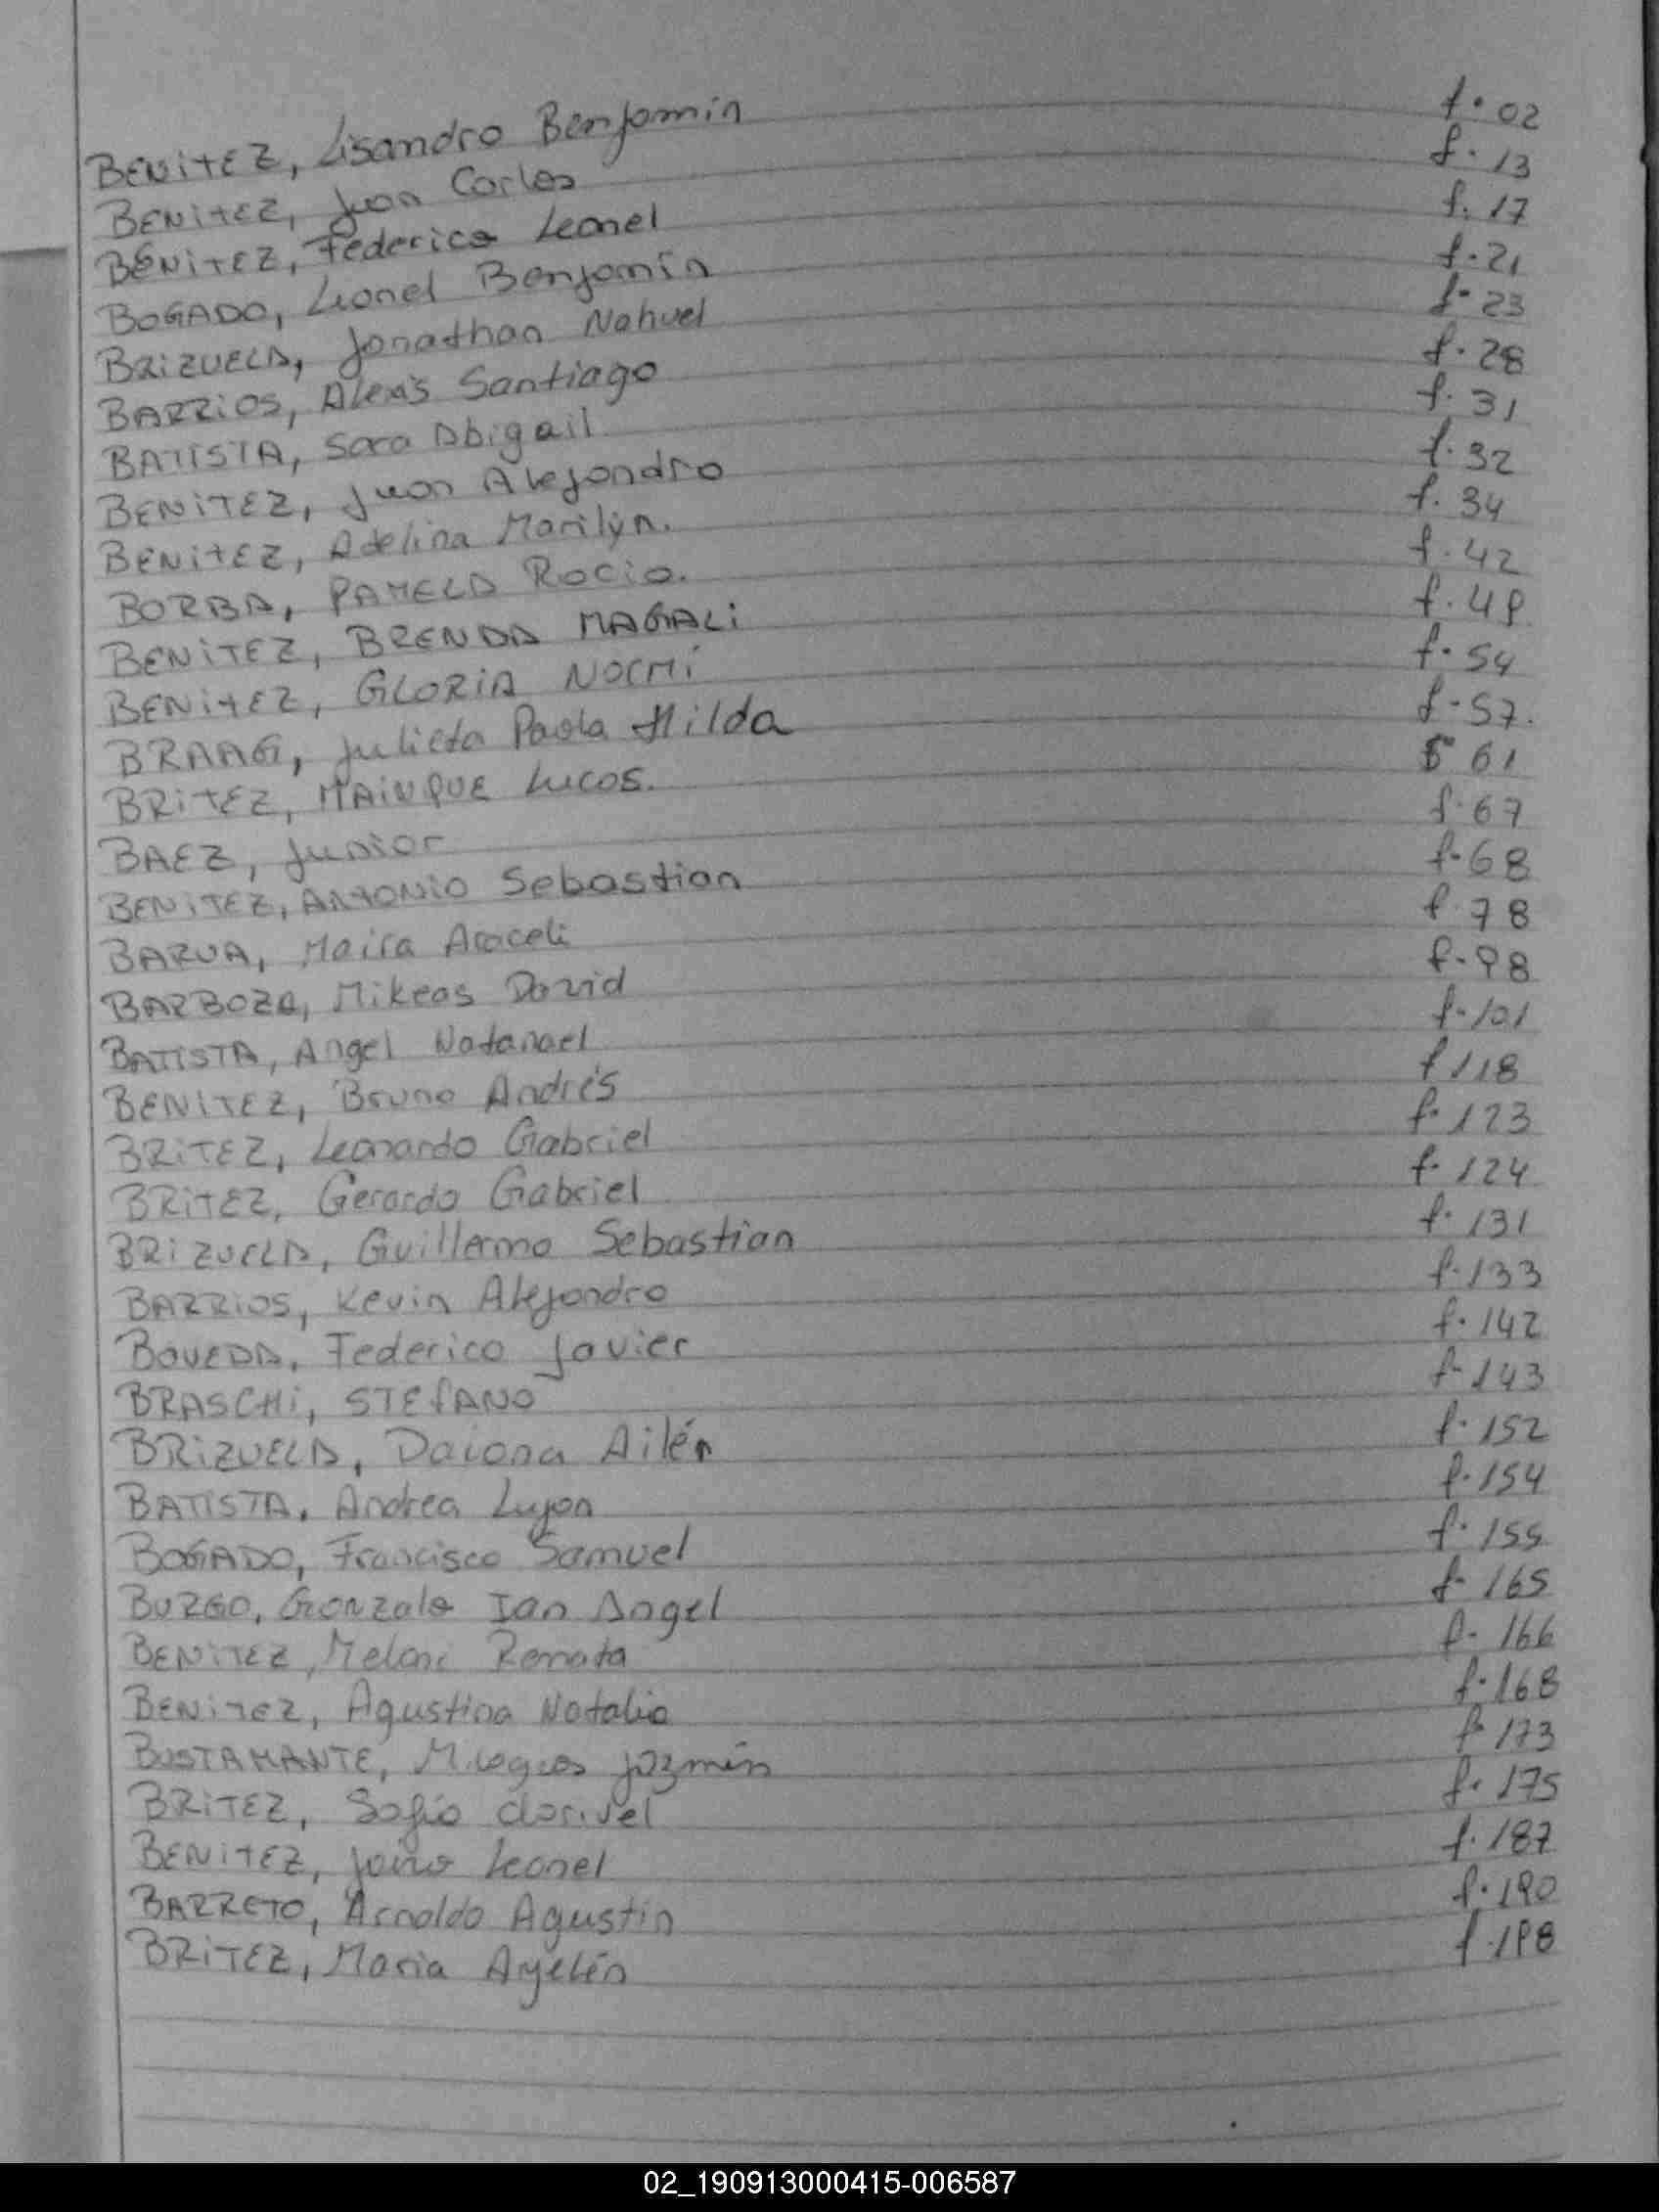 BENITEZ, Lisandro Benjamín f. 02
BENITEZ, Juan Carlos f. 13
BENITEZ, Federico Leonel f. 17
BOGADO, Lionel Benjamín f. 21
BRIZUELA, Jonathan Nahuel f. 23
BARRIOS, Alexis Santiago f. 28
BATISTA, Sara Abigail f. 31
BENITEZ, Juan Alejandro f. 32
BENITEZ, Adelina Marilyn. f. 34
BORBA, PAMELA Rocio. f. 42
BENITEZ, BRENDA MAGALI f. 49
BENITEZ, GLORIA NOEMÍ f. 54
BRAAG, Julieta Paola Hilda f. 57.
BRITEZ, MAINQUE Lucas. f 61
BAEZ, Junior f. 67
BENITEZ, ANTONIO Sebastian f. 68
BARUA, Maira Araceli f. 78
BARBOZA, Mikeas David f. 98
BATISTA, Angel Natanael f. 101
BENITEZ, Bruno Andrés f 118
BRITEZ, Leonardo Gabriel f. 123
BRITEZ, Gerardo Gabriel f. 124
BRIZUELA, Guillermo Sebastian f. 131
BARRIOS, Kevin Alejandro f. 133
BOVEDA, Federico Javier f. 142
BRASCHI, STEfANO f. 143
BRIZUELA, Daiana Ailén f. 152
BATISTA, Andrea Lujan f. 154
BOGADO, Francisco Samuel f. 155
BURGO, Gonzalo Ian Angel f. 165
BENITEZ, Melani Renata f. 166
BENITEZ, Agustina Natalia f. 168
BUSTAMANTE, Milagros Jazmín f. 173
BRITEZ, Sofia Clarivel f. 175
BENITEZ, Jairo Leonel f. 187
BARRETO, Arnaldo Agustin f. 190
BRITEZ, Maria Ayelén f. 198
02_190913000415-006587